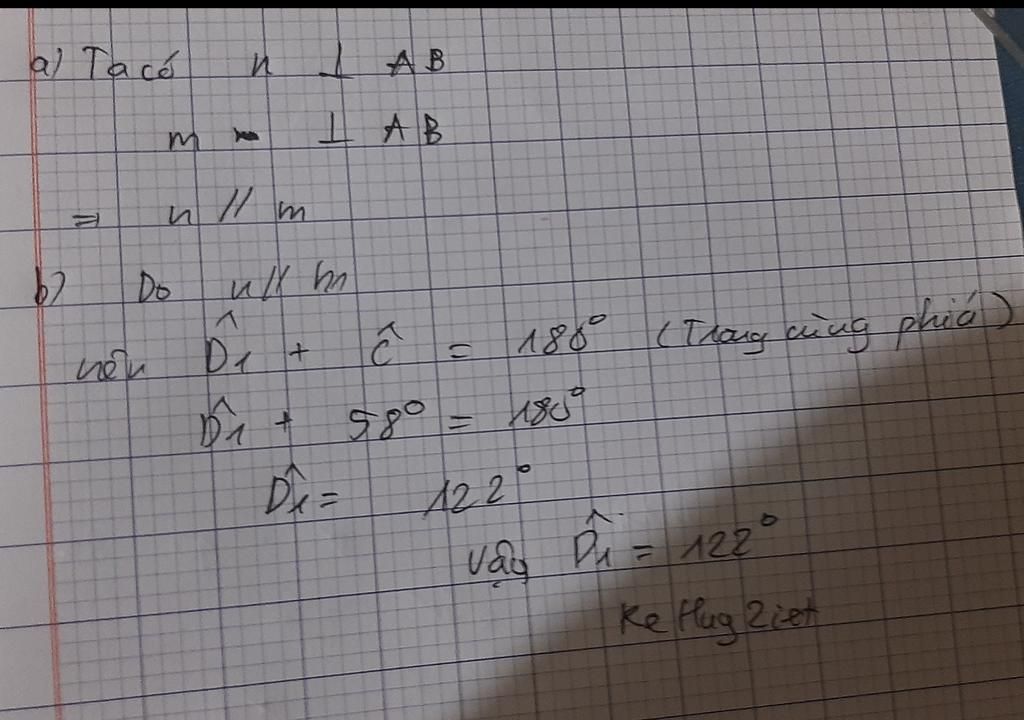 a) Ta có n ⊥ AB
m ⊥ AB
⇒ n // m
b) Do n // m
nên D̂1 + Ĉ = 180° (Trong cùng phía)
D̂1 + 58° = 180°
D̂1 = 122°
Vậy D̂1 = 122°